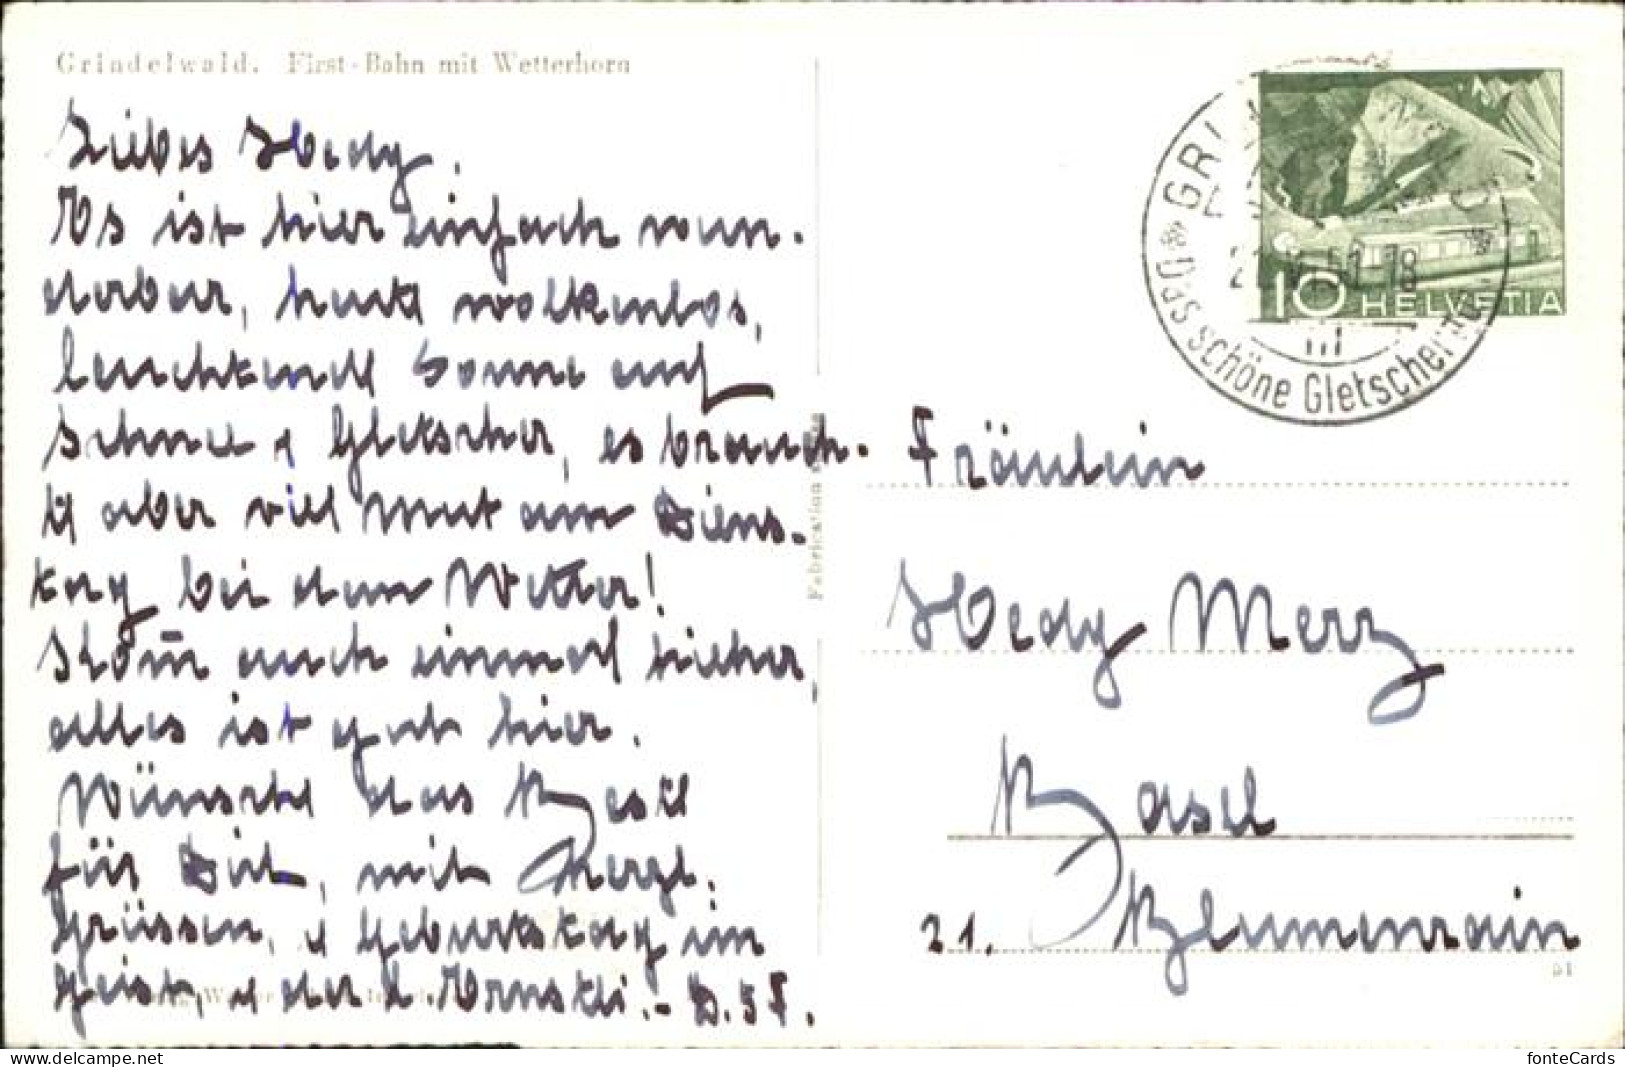 Grindelwald. First-Bahn mit Wetterhorn
Liebes Hedy,
Es ist hier einfach wun-
derbar, heute wolkenlos,
leuchtende Sonne auf
Schnee u Gletscher, es brauch-
te aber viel Mut am Diens-
tag bei dem Wetter!
Kom̄ auch einmal hieher,
alles ist gut hier.
Wünsche das Beste
für Dich, mit herzl.
Grüssen, u Geburtstag im
Geist, u der l. Ernstli.-
Fabrication
HELVETIA
10
51-18
Das schöne Gletscher
Fräulein
Hedy Merz
Basel
21. Blumenrain
51
fonteCards